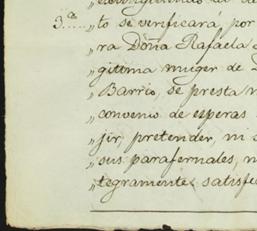 3.ª „to se verificara, por
ra Doña Rafaela
„gitima muger de
„Barris, se presta
„convenio de esperas
„jir, pretender, ni
„sus parafernales,
„tegramente satisfec